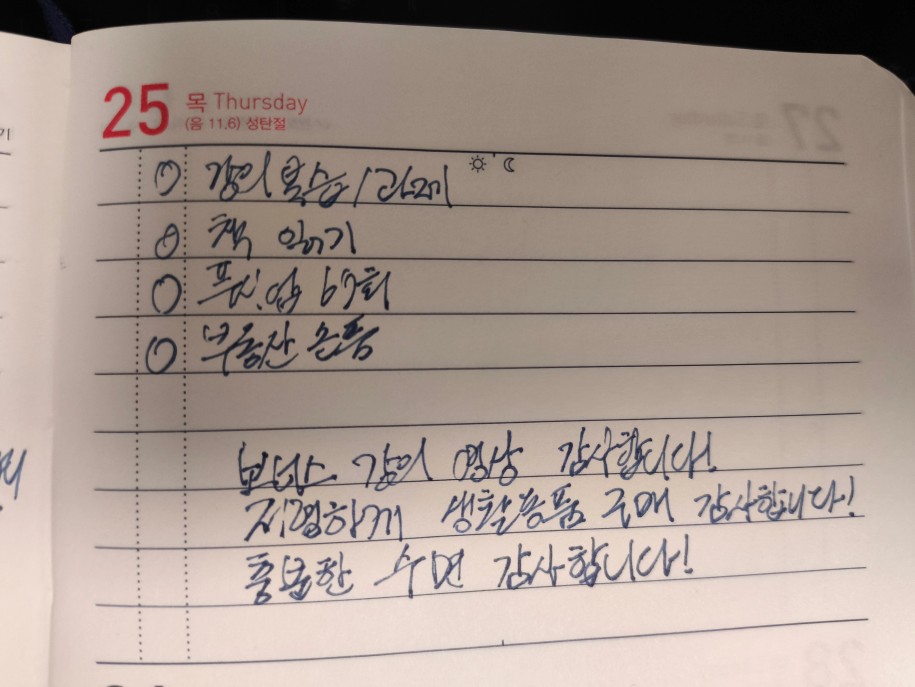 25 목 Thursday
(음 11.6) 성탄절
강의 복습 / 과제
책 읽기
푸시업 67회
부동산 손품
보너스 강의 영상 감사합니다!
저렴하게 생활용품 구매 감사합니다!
충분한 수면 감사합니다!